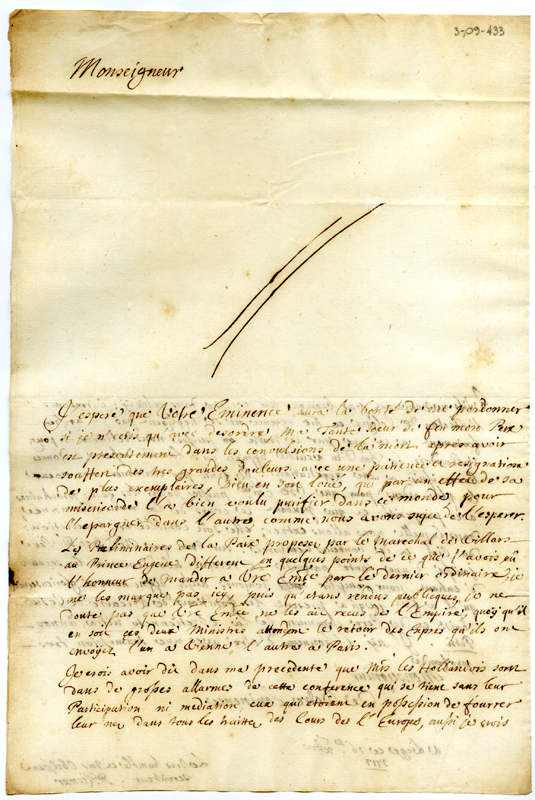 3-09-433
Monseigneur
J'espere que Vôtre Eminence aura la bonté de me pardonner
si je n'ecris qu'avec desordre, ma Tante soeur de feu mon Pere
est presentement dans les convulsions de la mort apres avoir
souffert des tres grandes douleurs avec une patience et resignation
de plus exemplaires, Dieu en soit loué, qui par un effet de sa
misericorde l'a bien voulu purifier dans ce monde, pour
l'epargner dans l'autre comme nous avons sujet de l'esperer.
Les Preliminaires de la Paix proposez par le Marechal de Villars
au Prince Eugene different en quelques points de ce que j'avois eû
l'honneur de mander a Vre Emce par le dernier ordinaire, je
ne les marque pas ici, puis qu'etans rendus publiques, je ne
doute pas que Vre Emce ne les ait recus de l'Empire, quoy qu'il
en soit ces deux Ministres attendent le retour des Exprés qu'ils ont
envoyéz l'un a Vienne l'autre a Paris.
Je crois avoir dit dans ma precedente que Mrs les Hollandois sont
dans de grosses allarmes de cette conference qui se tient sans leur
Participation ni mediation, eux qui etoient en possession de fourrer
leur nez dans tous les traittés des Cours de l'Europe, aussi je crois